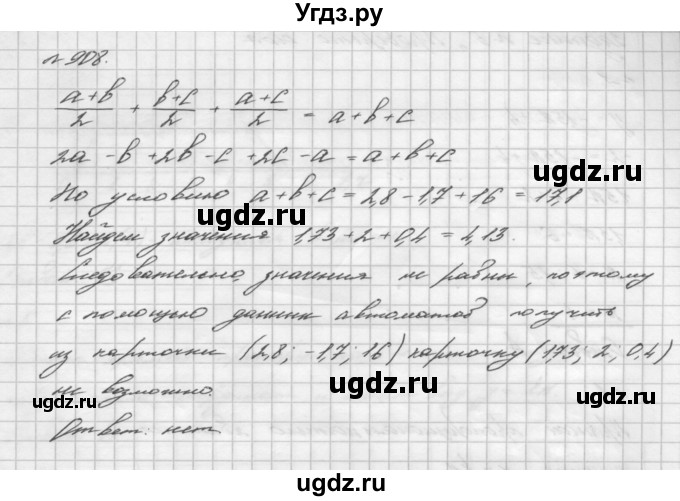 Угдз.ру
№ 908.
(a+b)/2 + (b+c)/2 + (a+c)/2 = a+b+c
2a - b + 2b - c + 2c - a = a+b+c
По условию a+b+c = 2,8 - 1,7 + 16 = 17,1
Найдем значения 1,73 + 2 + 0,4 = 4,13.
Следовательно, значения не равны, поэтому
с помощью данных автоматов получить
из карточки (2,8; -1,7; 16) карточку (1,73; 2; 0,4)
не возможно.
Ответ: нет.
ugdz.ru
ugdz.ru
ugdz.ru
ugdz.ru
ugdz.ru
ugdz.ru
ugdz.ru
ugdz.ru